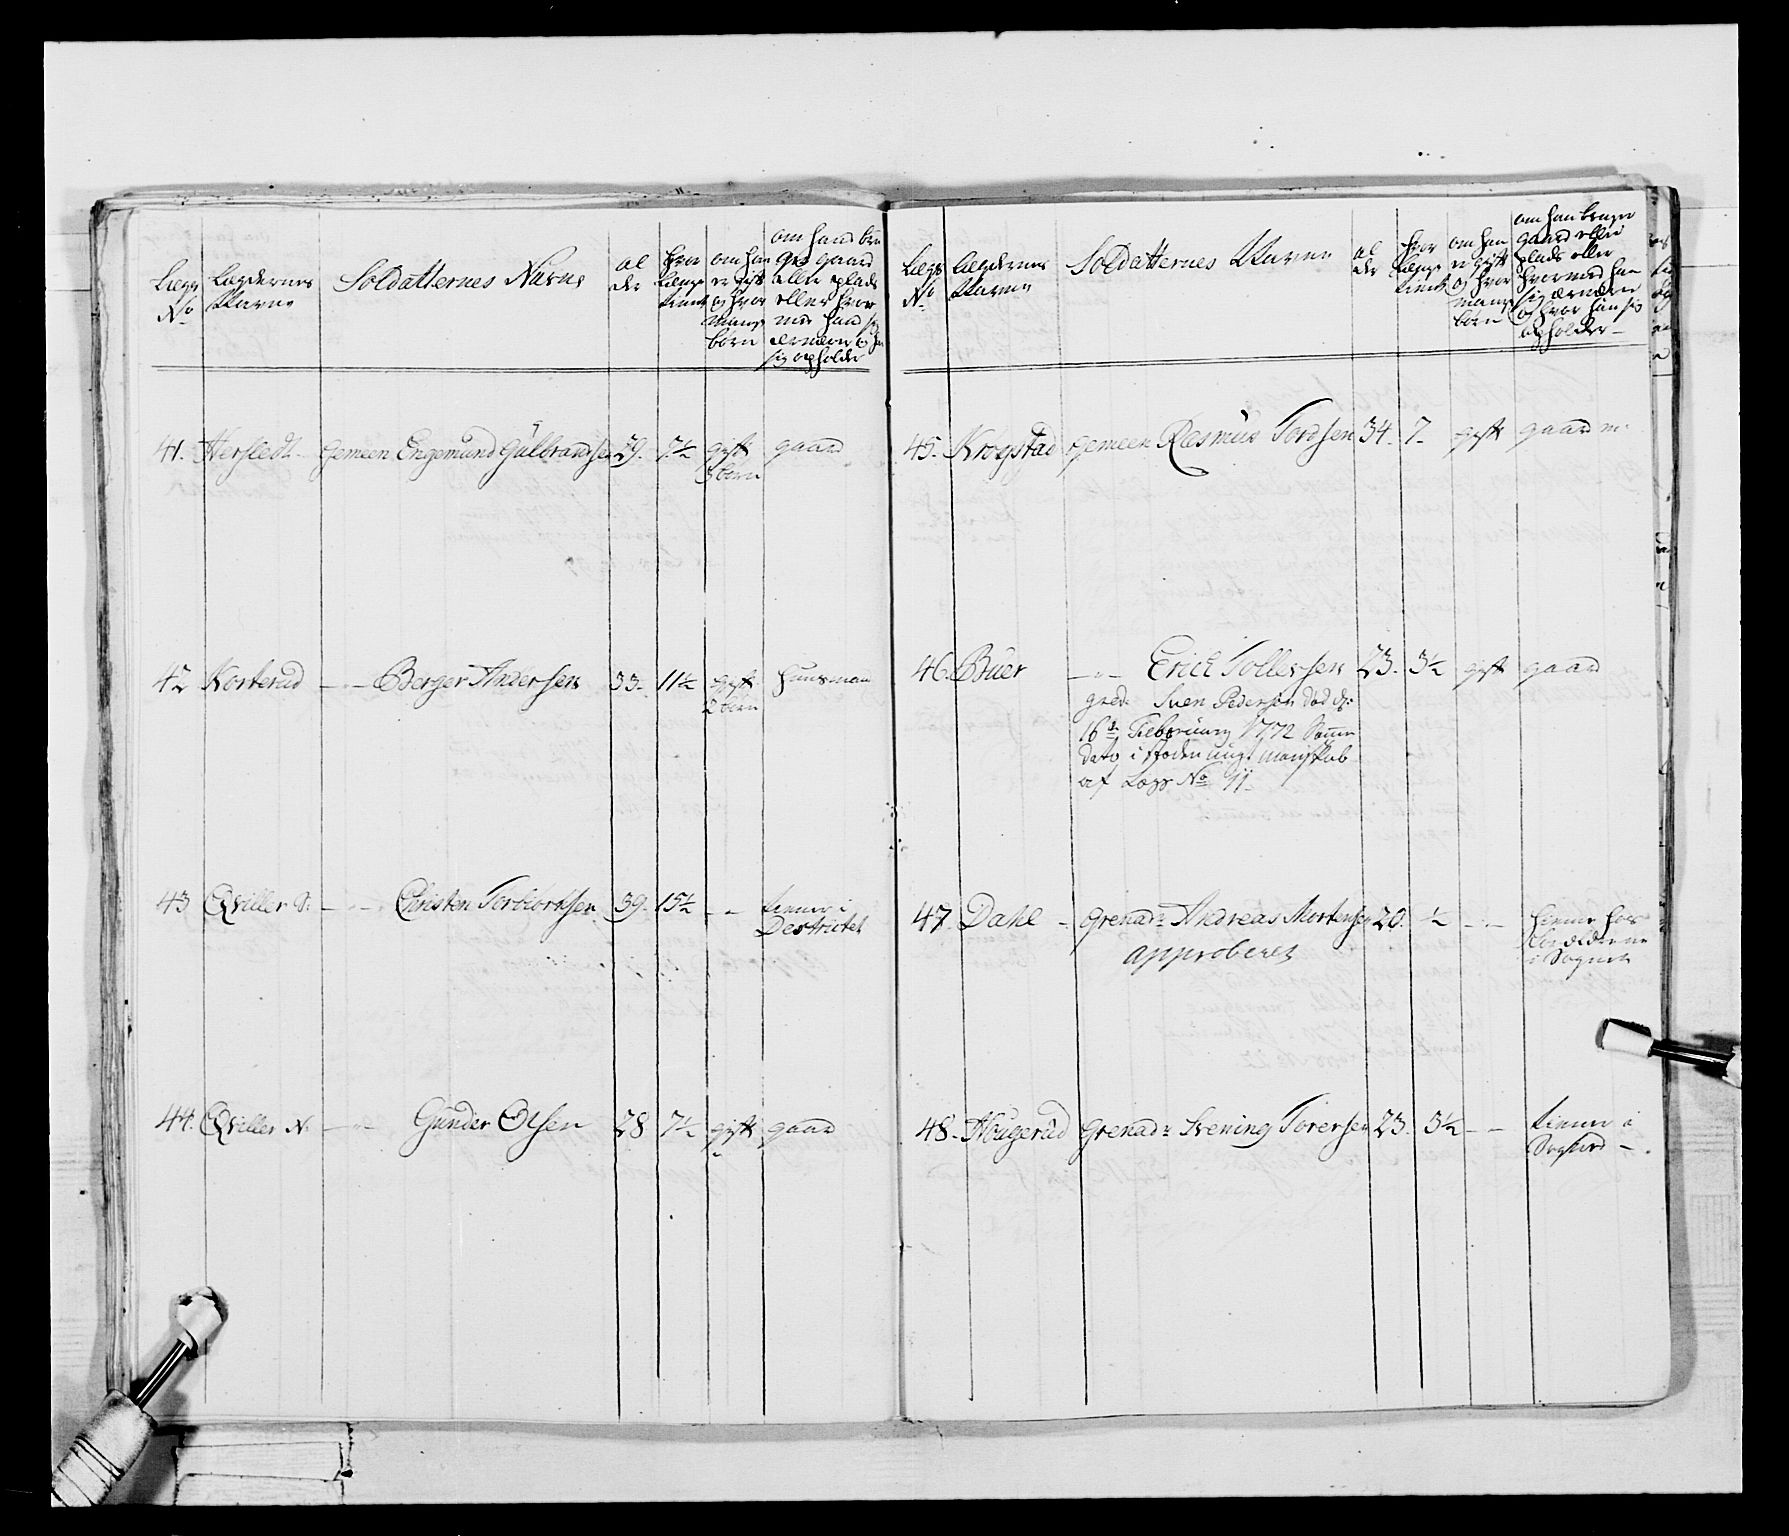 Legs No
Legdernes Navne
Soldatternes Navne
al der
hvor længe tient
om han er gift og hvor mange børn
om hand bru
ger gaard
eller plads
eller hvor
med hand sig
ernærer og
sig opholder
41. Hersledt gemeen Engemund Gulbrandsen 29. 7½ gift gaard
3 børn
42 Korterud —"— Berger Andersen 33. 11½ gift huusmand
2 børn
43 Qviller S: —"— Christen Torbiørnsen 39. 15½ —"— tiener i
Destrictet
44. Qviller N. —"— Gunder Olsen 28 7½ gift gaard
Legs No
Legdernes Navne
Soldatternes Navne
al der
hvor længe tient
om han er gift og hvor mange børn
om han bruger
gaard eller
plads eller
hvormed han
sig ærnærer
og hvor han sig
opholder —
45. Krogstad gemeen Rasmus Tordsen 34. 7. gift gaard
46. Buer —"— Erich Tollefsen 23. 3½ gift gaard
Sven Pedersen død d:
16de Februarij 1772 Samme
dato i steden ungt mandskab
af Legs No
47. Dahl - Grenad: Andreas Mortensen 20. ½ —"— hiemme hos
Forældrene
i Sognet
approberet
48. Hougerud Grenad: Svening Torersen 23. 3½ — — tiener i
Sognet —